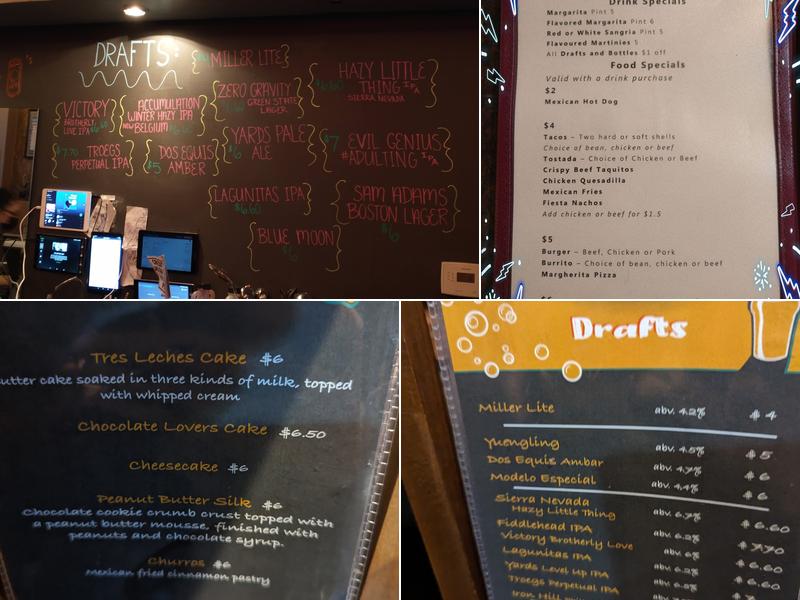 DRAFTS:
MILLER LITE
HAZY LITTLE
THING IPA
$6.60
SIERRA NEVADA
ZERO GRAVITY
GREEN STATE
LAGER
VICTORY
BROTHERLY
LOVE IPA $6.60
ACCUMULATION
WINTER HAZY IPA
NEW BELGIUM
YARDS PALE
$6 ALE
$7 EVIL GENIUS
#ADULTING IPA
$7.70 TROEGS
PERPETUAL IPA
DOS EQUIS
$5 AMBER
LAGUNITAS IPA
$6.60
SAM ADAMS
BOSTON LAGER
$6
BLUE MOON
$6
Drink Specials
Margarita Pint 5
Flavored Margarita Pint 6
Red or White Sangria Pint 5
Flavoured Martinies 5
All Drafts and Bottles $1 off
Food Specials
Valid with a drink purchase
$2
Mexican Hot Dog
$4
Tacos – Two hard or soft shells
Choice of bean, chicken or beef
Tostada – Choice of Chicken or Beef
Crispy Beef Taquitos
Chicken Quesadilla
Mexican Fries
Fiesta Nachos
Add chicken or beef for $1.5
$5
Burger – Beef, Chicken or Pork
Burrito – Choice of bean, chicken or beef
Margherita Pizza
Tres Leches Cake $6
utter cake soaked in three kinds of milk, topped
with whipped cream
Chocolate Lovers Cake $6.50
Cheesecake $6
Peanut Butter Silk $6
Chocolate cookie crumb crust topped with
a peanut butter mousse, finished with
peanuts and chocolate syrup.
Churros $6
Mexican fried cinnamon pastry
Drafts
Miller Lite abv. 4.2% $4
Yuengling abv. 4.5% $5
Dos Equis Ambar abv. 4.7% $6
Modelo Especial abv. 4.4% $6
Sierra Nevada
Hazy Little Thing abv. 6.7% $6.60
Fiddlehead IPA abv. 6.2% $7.70
Victory Brotherly Love abv. 6% $6.60
Lagunitas IPA abv. 6.2% $6.60
Yards Level Up IPA
Troegs Perpetual IPA
Iron Hill